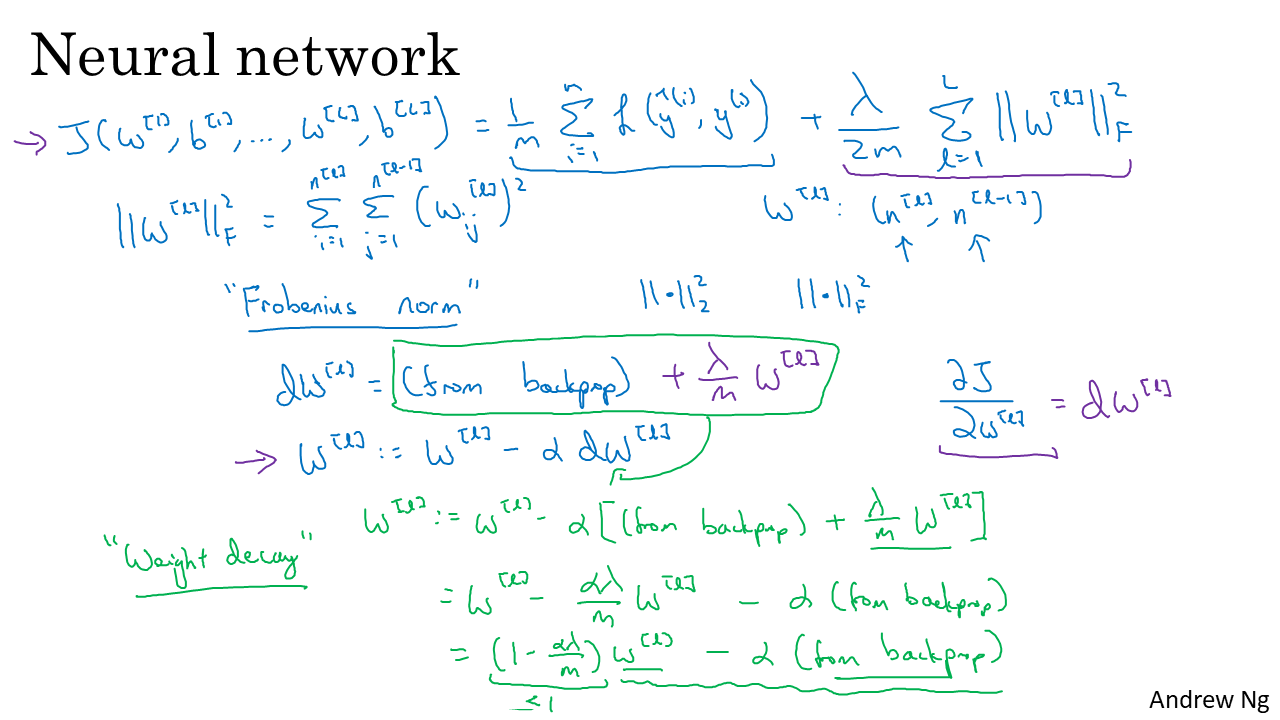 Neural network
→ J(w^[1], b^[1], ..., w^[L], b^[L]) = 1/m ∑_{i=1}^{m} L(ŷ^(i), y^(i)) + λ/2m ∑_{l=1}^{L} ||w^[l]||_F^2
||w^[l]||_F^2 = ∑_{i=1}^{n^[l]} ∑_{j=1}^{n^[l-1]} (w_{ij}^[l])^2 w^[l]: (n^[l], n^[l-1])
↑ ↑
"Frobenius norm" ||·||_2^2 ||·||_F^2
dw^[l] = (from backprop) + λ/m w^[l] ∂J/∂w^[l] = dw^[l]
→ w^[l] := w^[l] - α dw^[l]
"Weight decay" w^[l] := w^[l] - α[(from backprop) + λ/m w^[l]]
= w^[l] - αλ/m w^[l] - α(from backprop)
= (1 - αλ/m) w^[l] - α(from backprop)
<1
Andrew Ng